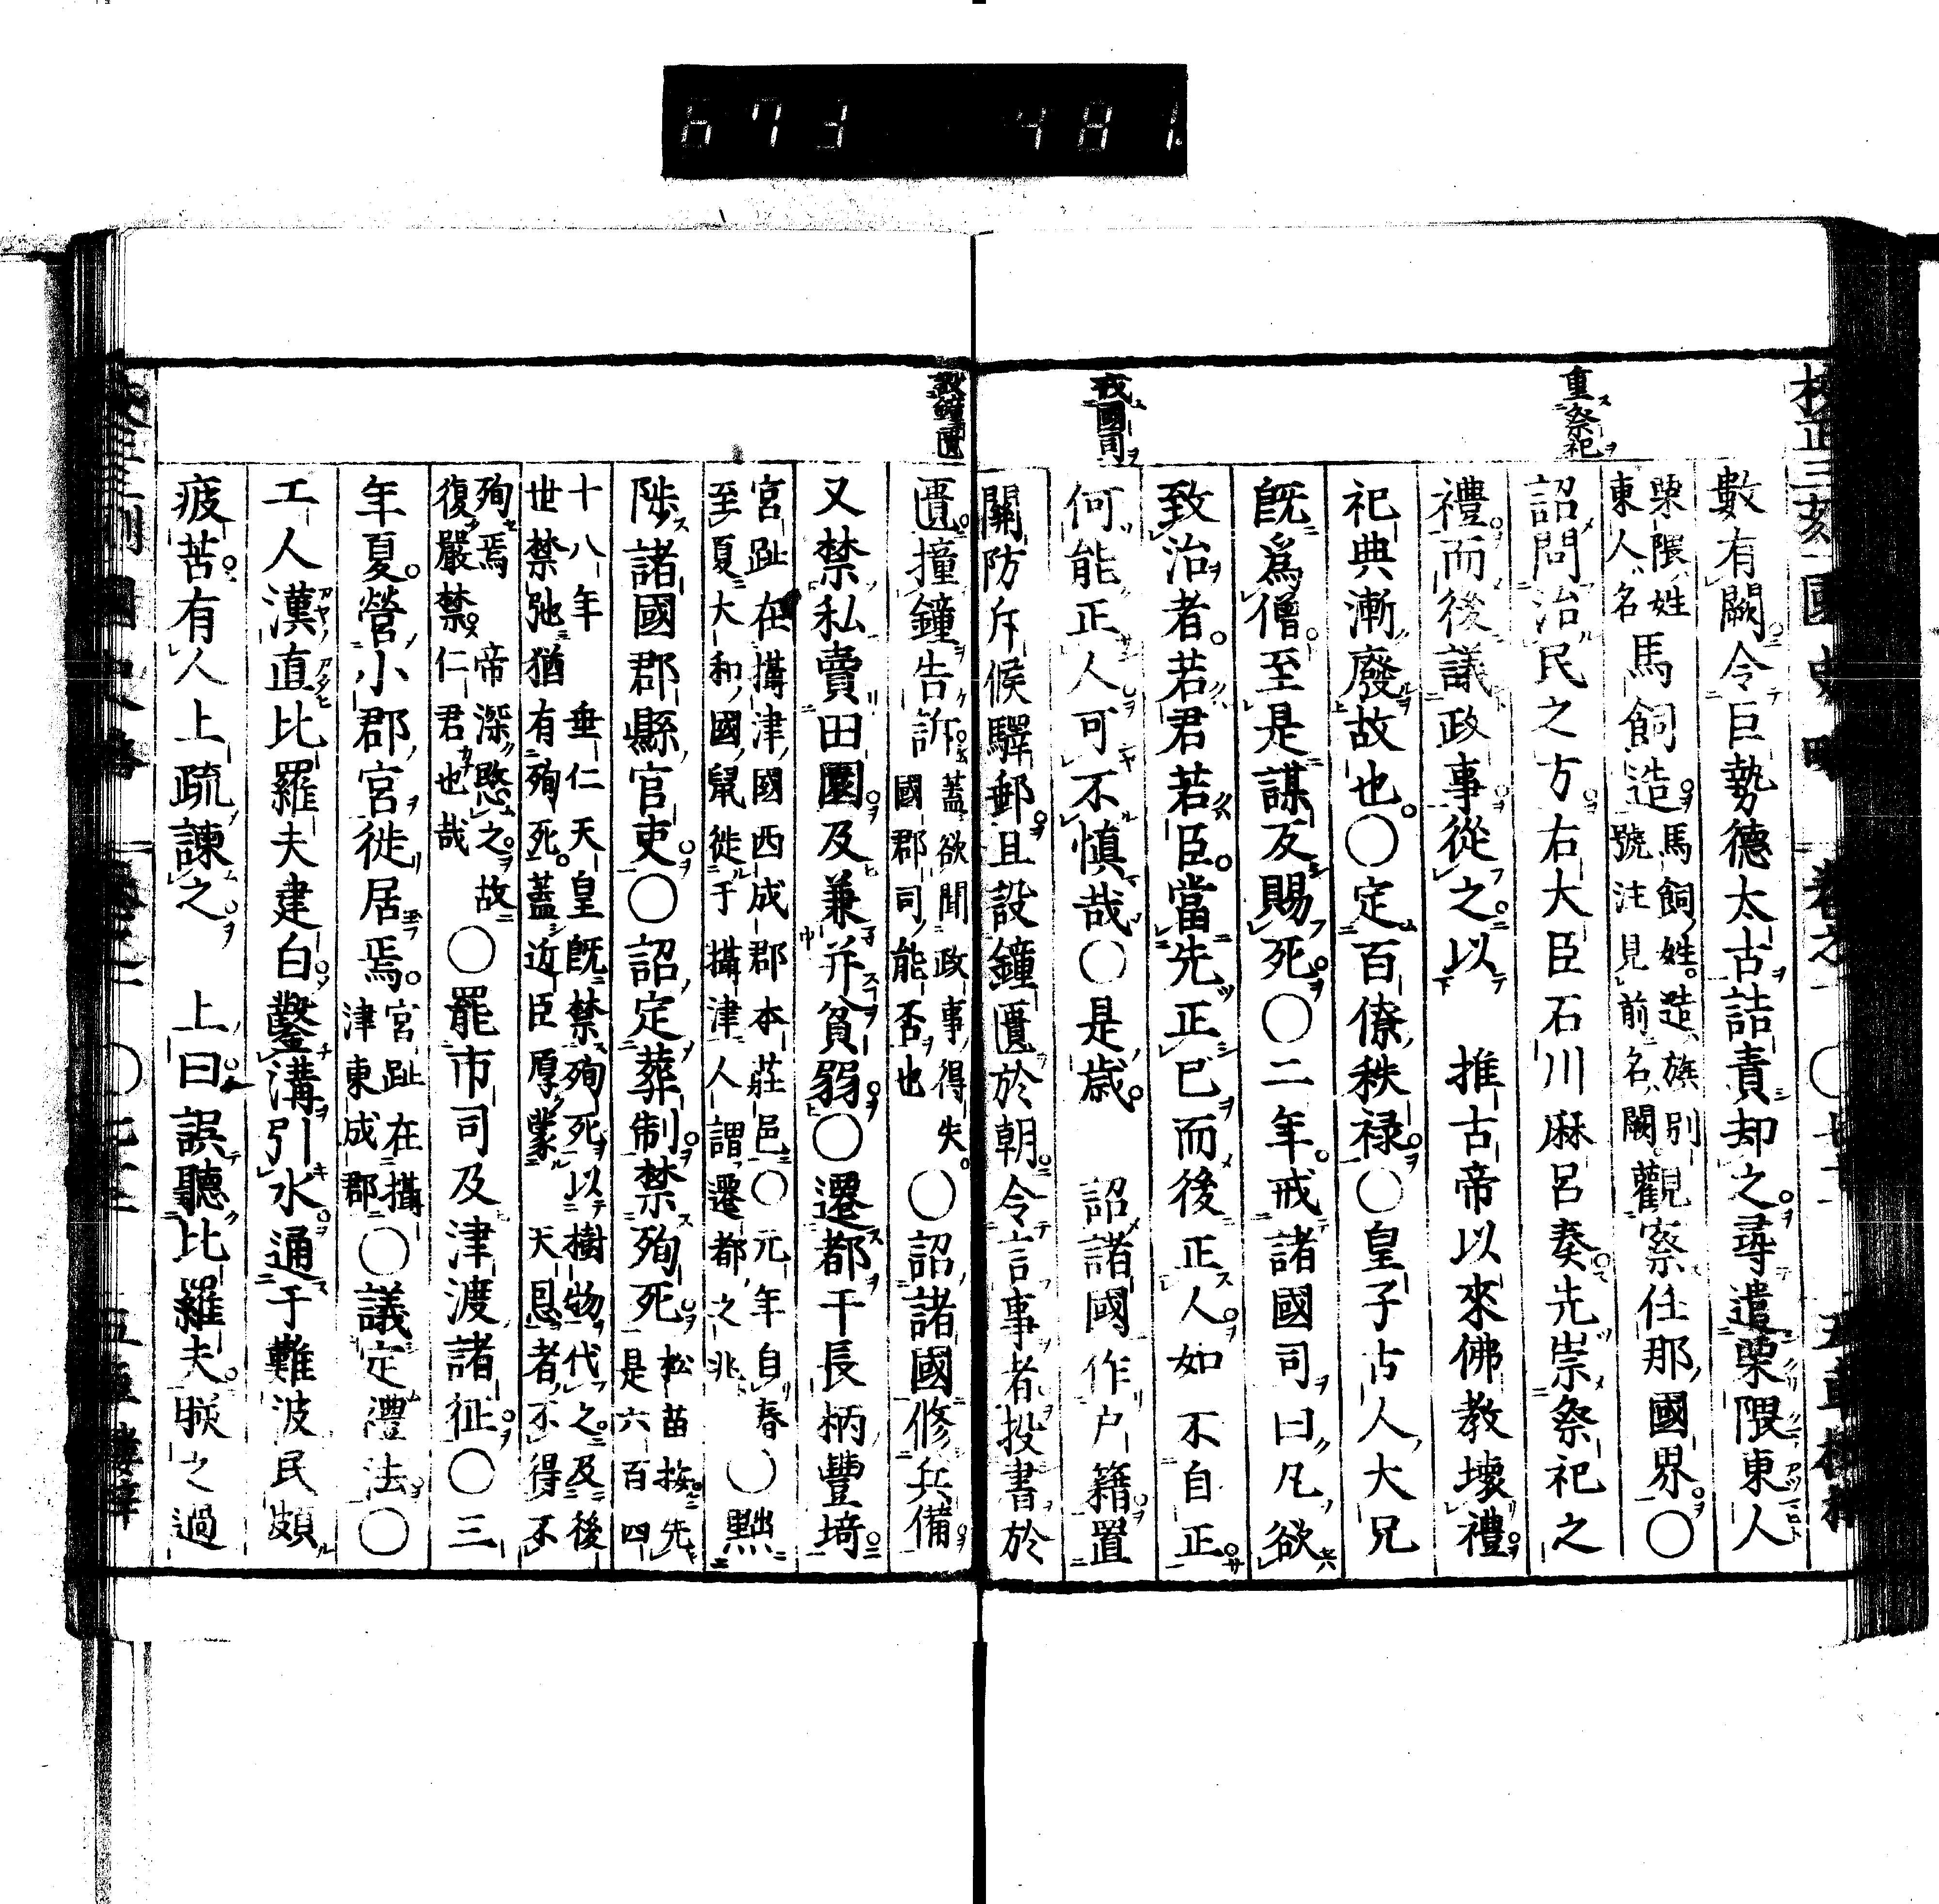 673 481
校正三刻國史略
卷之一
重祭祀
戒國司
設鐘匱
數有闕令巨勢德太古詰責却之尋遣栗隈東人
栗隈姓東人名馬飼造馬飼姓造族別號注見前名闕觀察任那國界〇
詔問治民之方右大臣石川麻呂奏先崇祭祀之
禮而後議政事從之以　推古帝以來佛教壞禮
祀典漸廢故也〇定百僚秩禄〇皇子古人大兄
既爲僧至是謀反賜死〇二年戒諸國司曰凡欲
致治者若君若臣當先正已而後正人如不自正
何能正人可不慎哉〇是歳　詔諸國作户籍置
關防斥候驛郵且設鐘匱於朝令言事者投書於
匱撞鐘告訴蓋欲聞政事得失國郡司能否也〇詔諸國修兵備
又禁私賣田園及兼并貧弱〇遷都于長柄豐埼
宮趾在攝津國西成郡本莊邑〇元年自春至夏大和國鼠徙于攝津人謂遷都之兆〇黜
陟諸國郡縣官吏〇詔定葬制禁殉死松苗按先是六百四
十八年　垂仁天皇既禁殉死以樹物代之及後世禁弛猶有殉死蓋近臣厚蒙　天恩者不得不
殉焉　帝深愍之故復嚴禁仁君也哉〇罷市司及津渡諸征〇三
年夏營小郡宮徙居焉宮趾在攝津東成郡〇議定禮法〇
工人漢直比羅夫建白鑿溝引水通于難波民頗
疲苦有人上疏諫之　上曰誤聽比羅夫朕之過